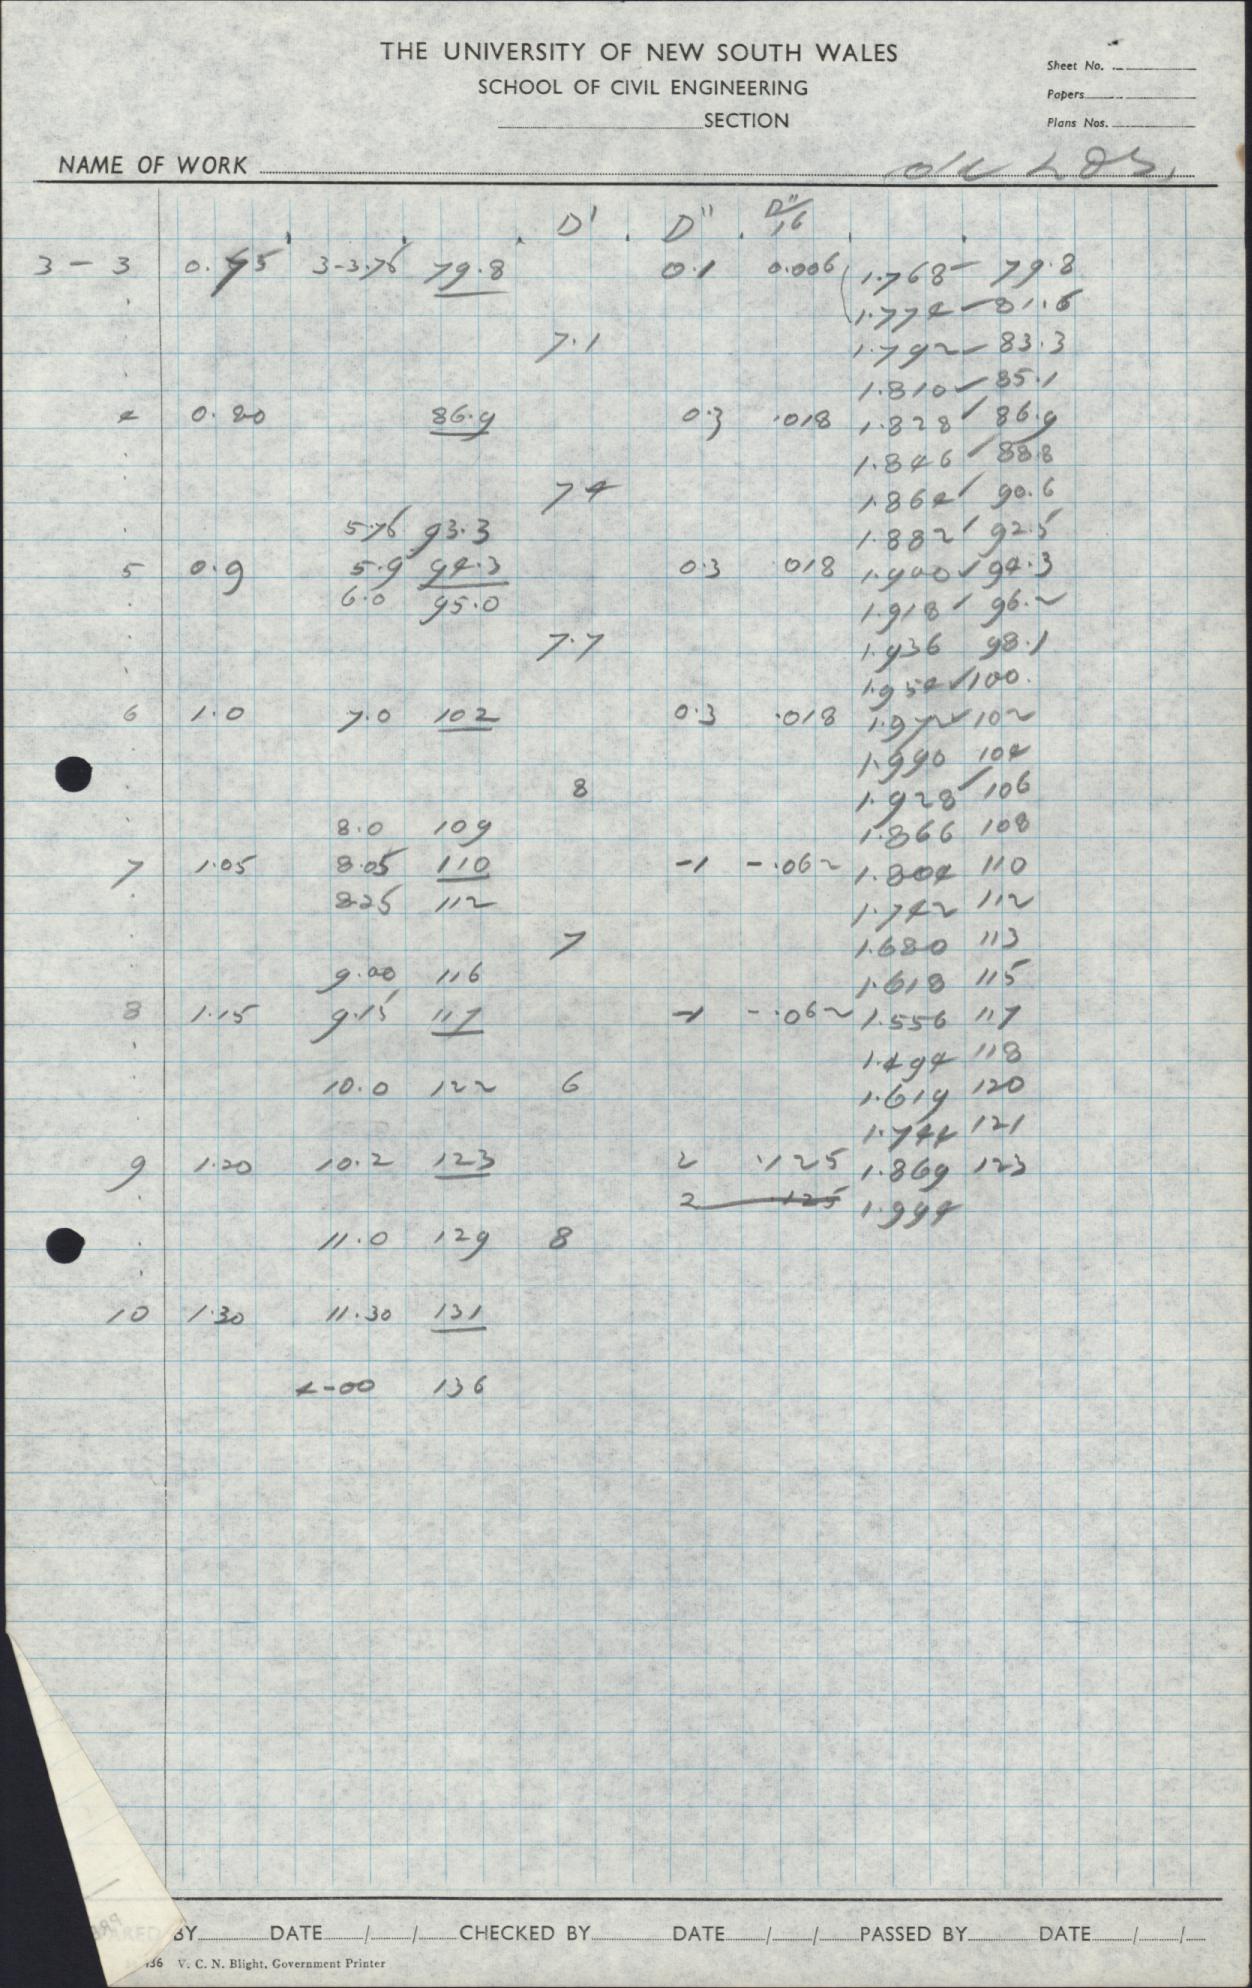 THE UNIVERSITY OF NEW SOUTH WALES
SCHOOL OF CIVIL ENGINEERING
SECTION
Sheet No.
Papers
Plans Nos.
NAME OF WORK
D' D" D"/16
3 - 3 0.75 3-3.75 79.8 0.1 0.006 1.768 - 79.8
1.774 - 81.6
7.1 1.792 - 83.3
1.810 / 85.1
4 0.80 86.9 0.3 .018 1.828 / 86.9
1.846 / 88.8
7.4 1.864 / 90.6
5.75 93.3 1.882 / 92.5
5 0.9 5.9 94.3 0.3 018 1.900 / 94.3
6.0 95.0 1.918 / 96.2
7.7 1.936 98.1
1.954 / 100.
6 1.0 7.0 102 0.3 .018 1.972 / 102
1.990 104
8 1.928 / 106
8.0 109 1.866 108
7 1.05 8.05 110 -1 -.062 1.804 110
8.25 112 1.742 112
7 1.680 113
9.00 116 1.618 115
8 1.15 9.15 117 -1 -.062 1.556 117
1.494 118
10.0 122 6 1.619 120
1.744 121
9 1.20 10.2 123 2 .125 1.869 123
2 .125 1.994
11.0 129 8
10 1.30 11.30 131
4-00 136
BY DATE / / CHECKED BY DATE / / PASSED BY DATE / /
V. C. N. Blight, Government Printer